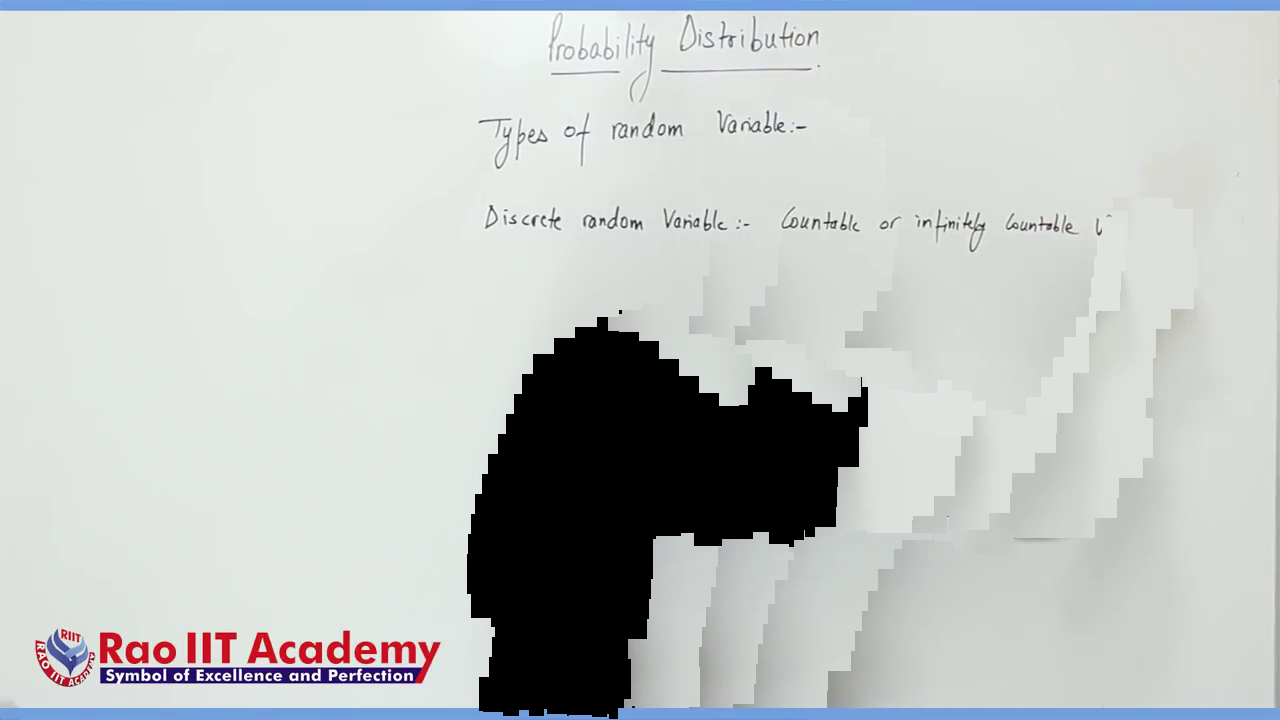 Probability Distribution
Types of random Variable:-
Discrete random Variable:- Countable or infinitely Countable
RIIT
RAO IIT ACADEMY
Rao IIT Academy
Symbol of Excellence and Perfection